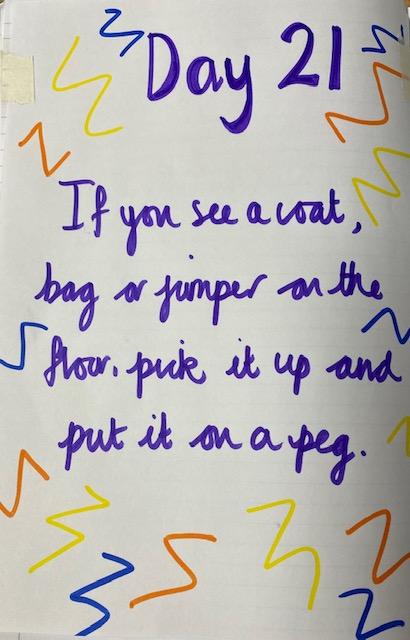 Day 21
If you see a coat,
bag or jumper on the
floor, pick it up and
put it on a peg.